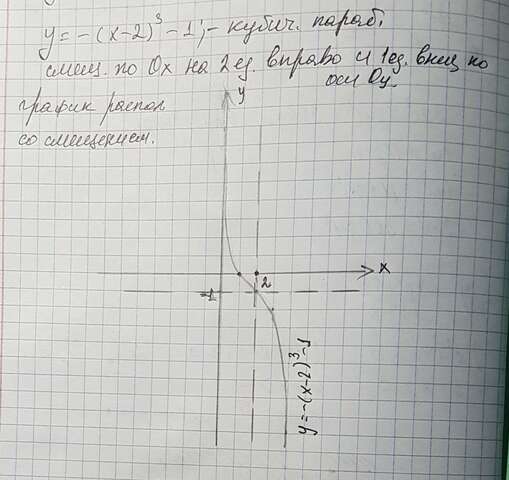 y = -(x-2)³ - 1; - кубич. параб.
смещ. по Ox на 2ед. вправо и 1ед. вниз по
оси Oy
график распол
со смещением.
y
x
2
-1
y = -(x-2)³-1